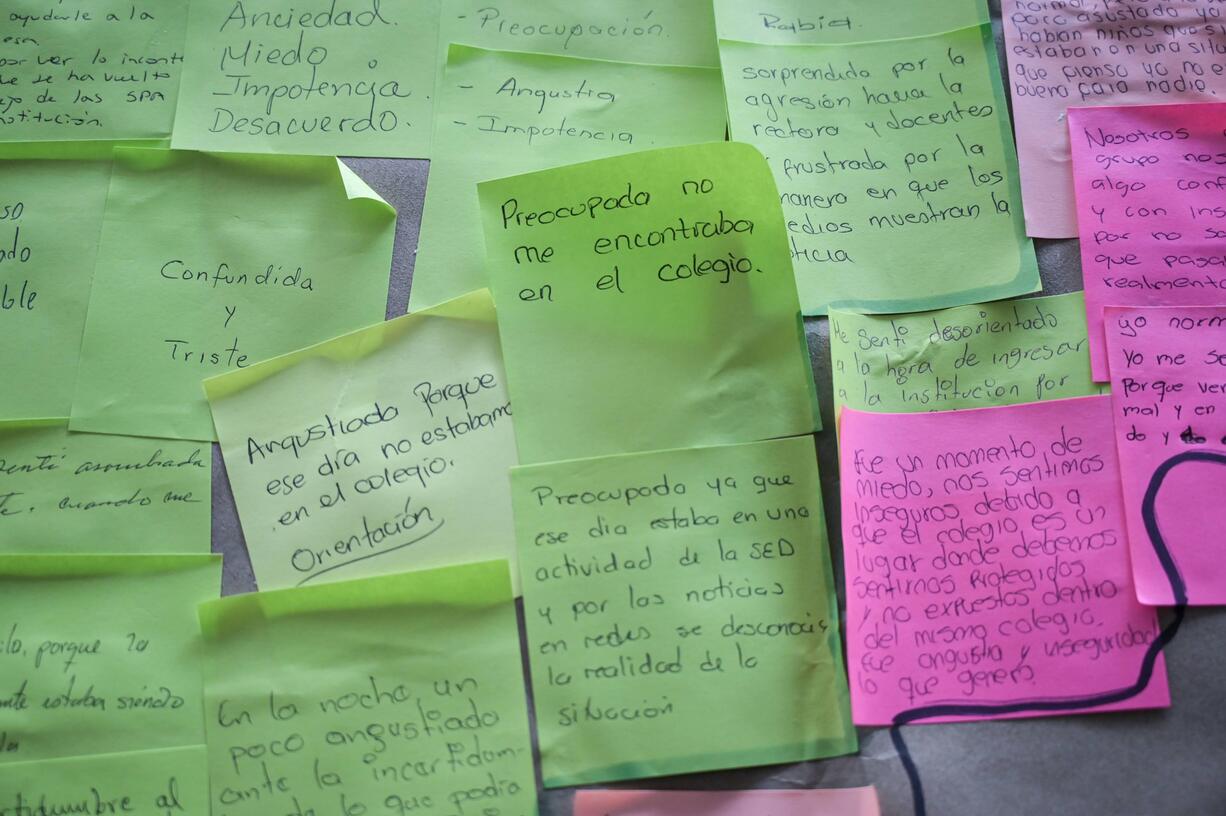 ayudarle a la
por ver lo
que se ha vuelto
de las SPA
Institución.
Anciedad.
Miedo
Impotencia.
Desacuerdo.
- Preocupación.
- Angustia
- Impotencia
Rabia.
sorprendida por la
agresión hacia la
rectora y docentes
frustrada por la
manera en que los
medios muestran la
noticia
normal,
poco asustado ya
habian niños que
estaban en una
que pienso ya no
bueno para nadie.
Nosotros
grupo nos
algo
y con
por no
que
realmente
Confundida
y
Triste
Preocupada no
me encontraba
en el colegio.
Me senti desorientado
a la hora de ingresar
a la institucion por
yo
Yo me
Porque
mal y en
do y
Angustiada Porque
ese día no estabamos
en el colegio.
Orientación
senti asombrada
cuando me
Preocupada ya que
ese dia estaba en una
actividad de la SED
y por las noticias
en redes se desconocia
la realidad de la
situación
Fue un momento de
miedo, nos sentimos
inseguros debido a
que el colegio es un
lugar donde debemos
sentirnos protegidos
y no expuestos dentro
del mismo colegio.
fue angustia y inseguridad
lo que genero.
porque la
estaba siendo
En la noche, un
poco angustiado
ante la incertidum-
lo que podía
al